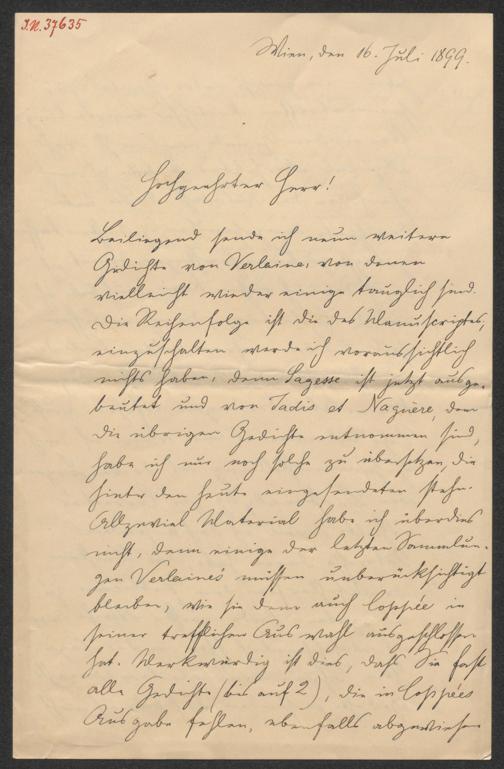 I.N. 37635
Wien, den 16. Juli 1899.
Hochgeehrter Herr!
Beiliegend sende ich neun weitere
Gedichte von Verlaine, von denen
vielleicht wieder einige tauglich sind.
Die Reihenfolge ist die des Manuscriptes,
einzuschalten werde ich voraussichtlich
nichts haben, denn Sagesse ist jetzt ausge-
beutet und von Jadis et Naguère, dem
die übrigen Gedichte entnommen sind,
habe ich nur noch solche zu übersetzen, die
hinter den heute eingesendeten stehn.
Allzuviel Material habe ich überdies
nicht, denn einige der letzten Sammlun-
gen Verlaine's müssen unberücksichtigt
bleiben, wie sie denn auch Coppée in
seiner trefflichen Auswahl ausgeschlossen
hat. Merkwürdig ist dies, dass Sie fast
alle Gedichte (bis auf 2), die in Coppées
Ausgabe fehlen, ebenfalls abgewiesen